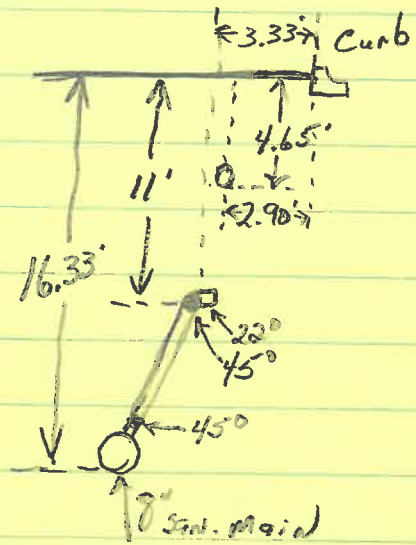 3.33' Curb
4.65'
11'
2.90'
16.33'
22°
45°
45°
8" San. Main